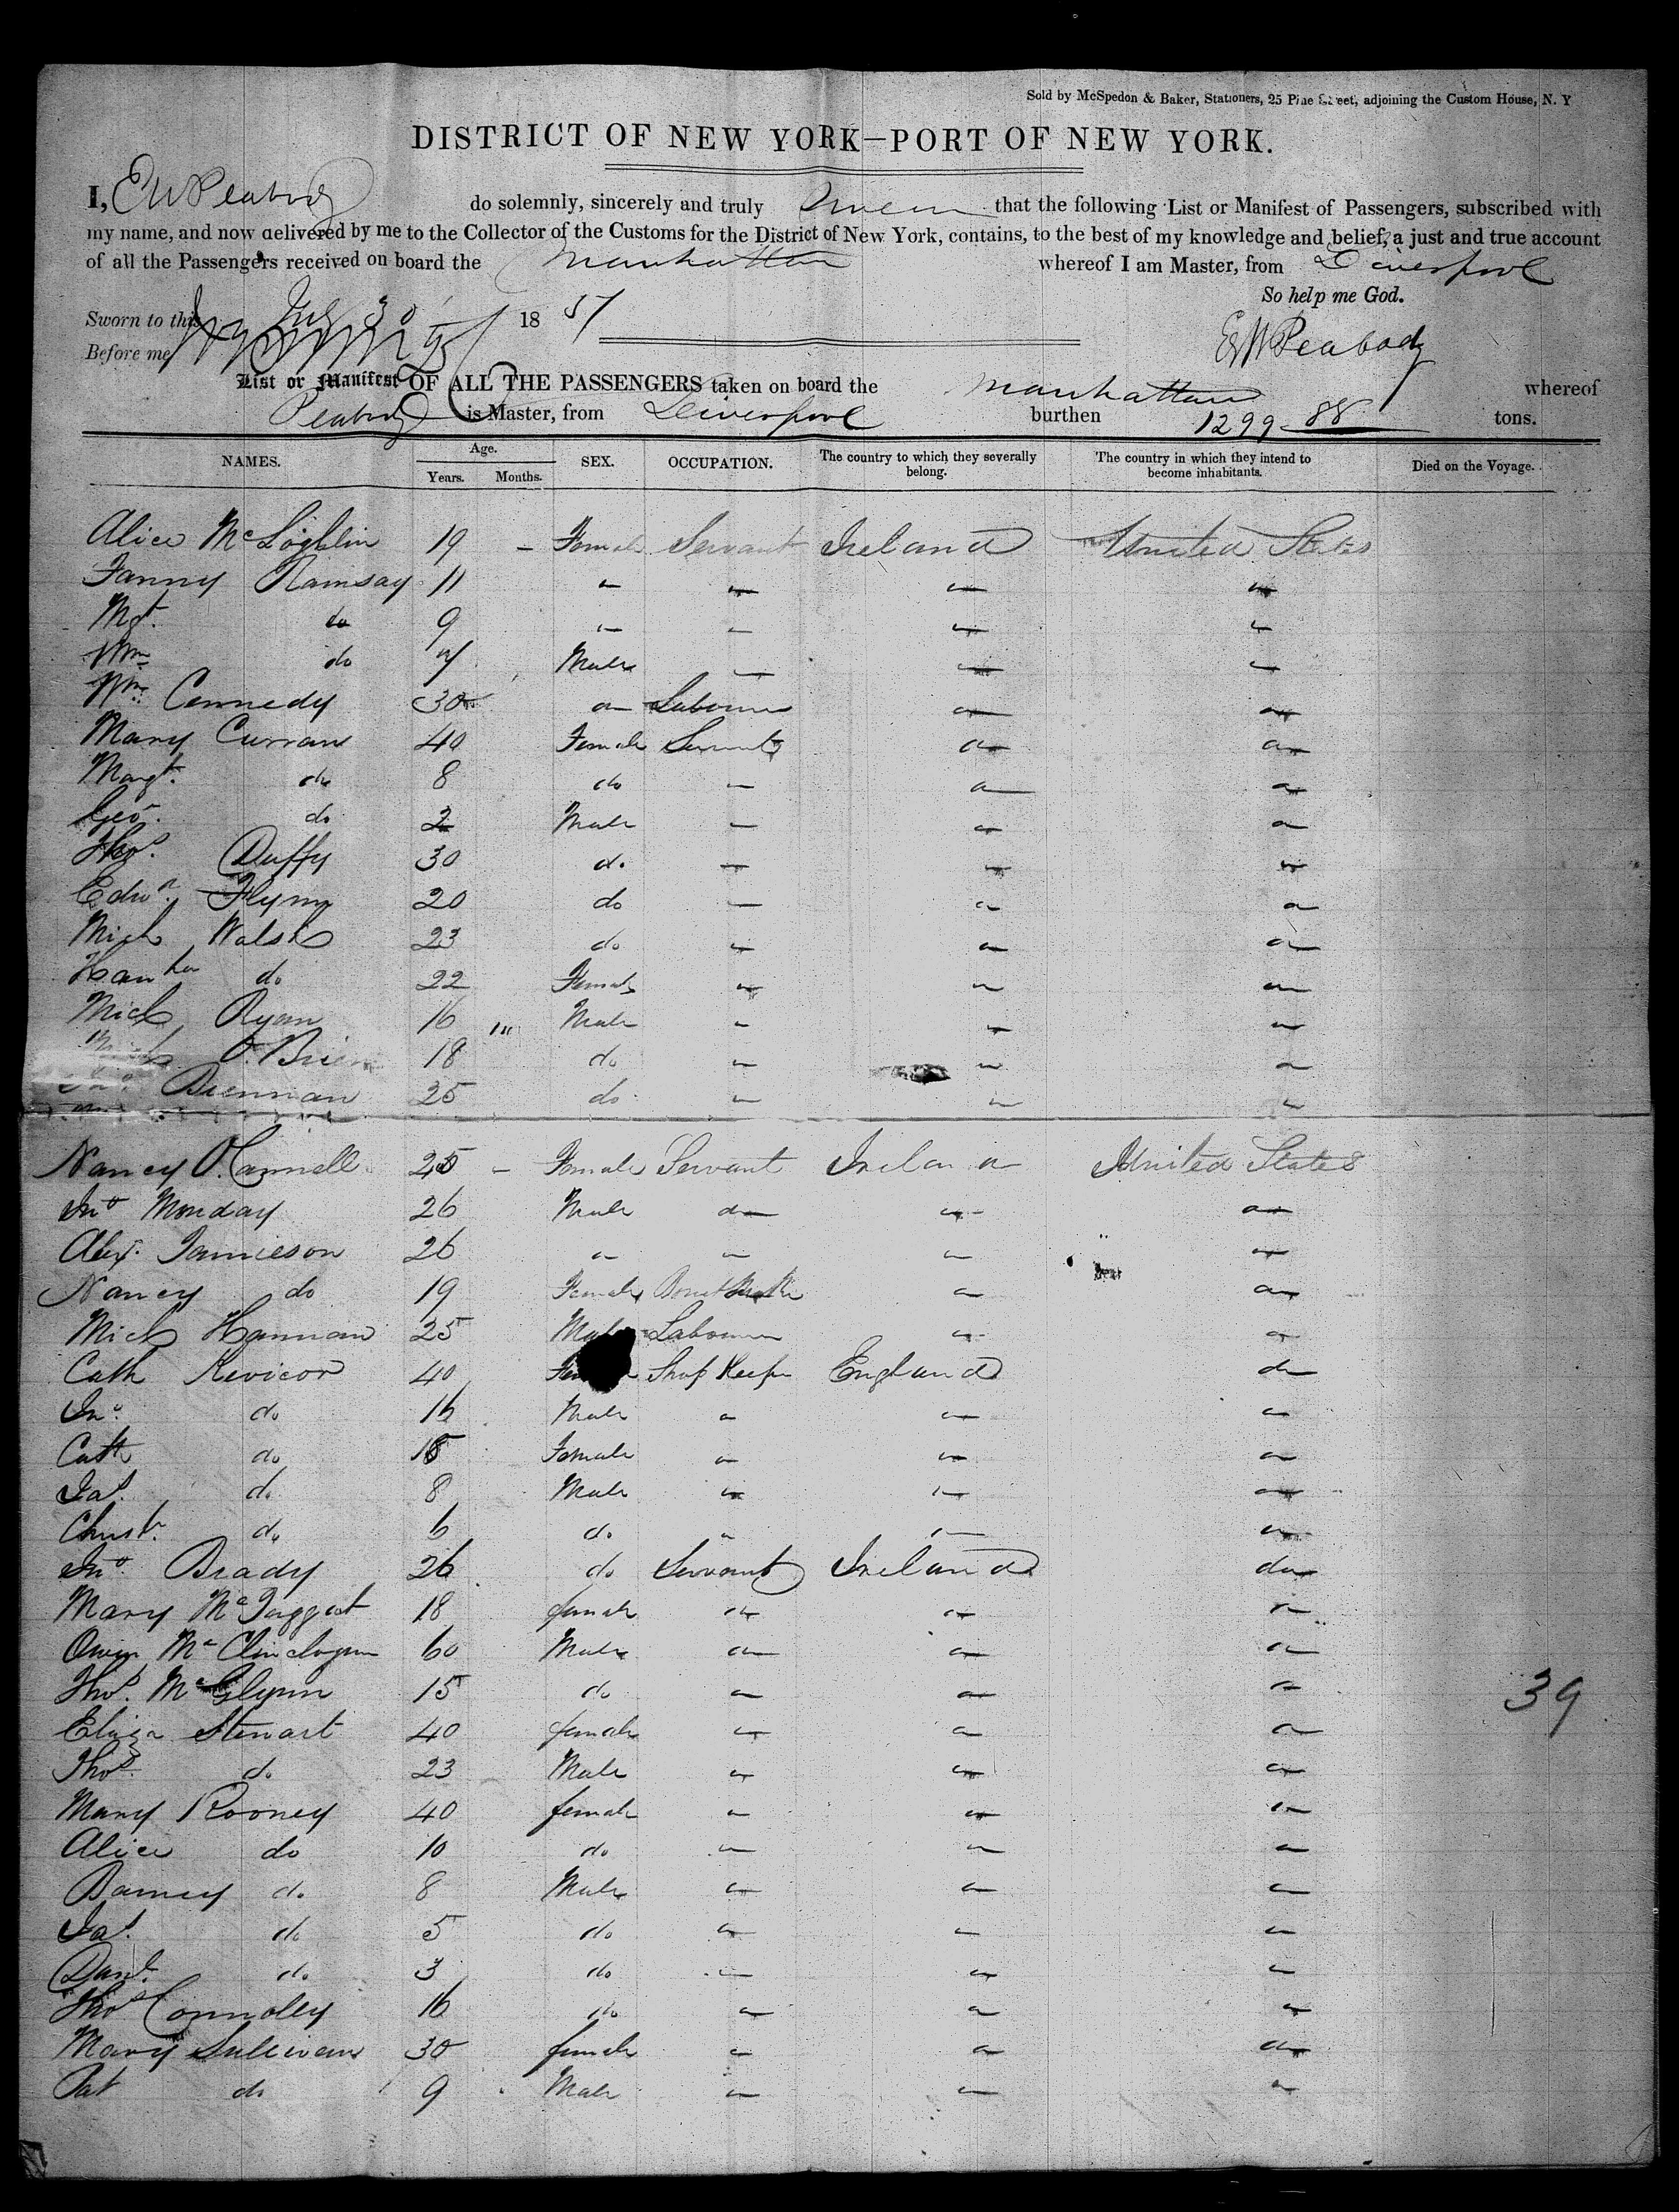 Sold by McSpedon & Baker, Stationers, 25 Pine Street, adjoining the Custom House, N. Y
DISTRICT OF NEW YORK—PORT OF NEW YORK.
I, E W Peabody do solemnly, sincerely and truly Swear that the following List or Manifest of Passengers, subscribed with
my name, and now delivered by me to the Collector of the Customs for the District of New York, contains, to the best of my knowledge and belief, a just and true account
of all the Passengers received on board the Manhattan whereof I am Master, from Liverpool
So help me God.
Sworn to this July 30 1851
Before me
E W Peabody
List or Manifest OF ALL THE PASSENGERS taken on board the Manhattan whereof
Peabody is Master, from Liverpool burthen 1299 88 tons.
NAMES. Age. Years. Months. SEX. OCCUPATION. The country to which they severally belong. The country in which they intend to become inhabitants. Died on the Voyage.
Alice McLoghlin 19 - Female Servant Ireland United States
Fanny Ramsay 11 " " " "
Mgt. do 9 " " " "
Wm do 7 Male " " "
Wm. Cennedy 30 " Labourer " "
Mary Curran 40 Female Servant " "
Margt. do 8 do " " "
Geo. do 2 Male " " "
Thos. Duffy 30 do " " "
Edwd. Flynn 20 do " " "
Mich Walsh 23 do " " "
Hanha do 22 Female " " "
Mich Ryan 16 Male " " "
O.Brien 18 do " " "
Brennan 25 do " " "
Nancy O.Connell 25 - Female Servant Ireland United States
Jno Monday 26 Male do " "
Alex. Jamieson 26 " " " "
Nancy do 19 Female " "
Mich Hannan 25 Male Labourer " "
Cath 40 Female Shop Keeper England do
Jno. do 16 Male " " "
Cath do 18 Female " " "
Jas. do 8 Male " " "
Christr. do 6 do " " "
Jno. Brady 26 do Servant Ireland do
Mary McTaggat 18 female " " "
Owen 60 Male " " "
Thos. McGlynn 15 do " " "
Eliza Stewart 40 female " " "
Thos. do 23 Male " " "
Mary Rooney 40 female " " "
Alice do 10 do " " "
Barney do 8 Male " " "
Jas. do 5 do " " "
Danl. do 3 do " " "
Thos Connolly 16 do " " "
Mary Sullivan 30 female " " "
Pat do 9 Male " " "
39